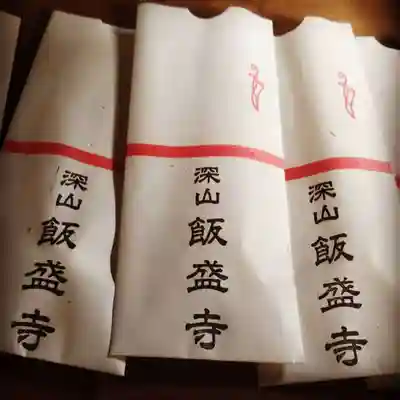 深山
飯盛寺
深山
飯盛寺
深山
飯盛寺